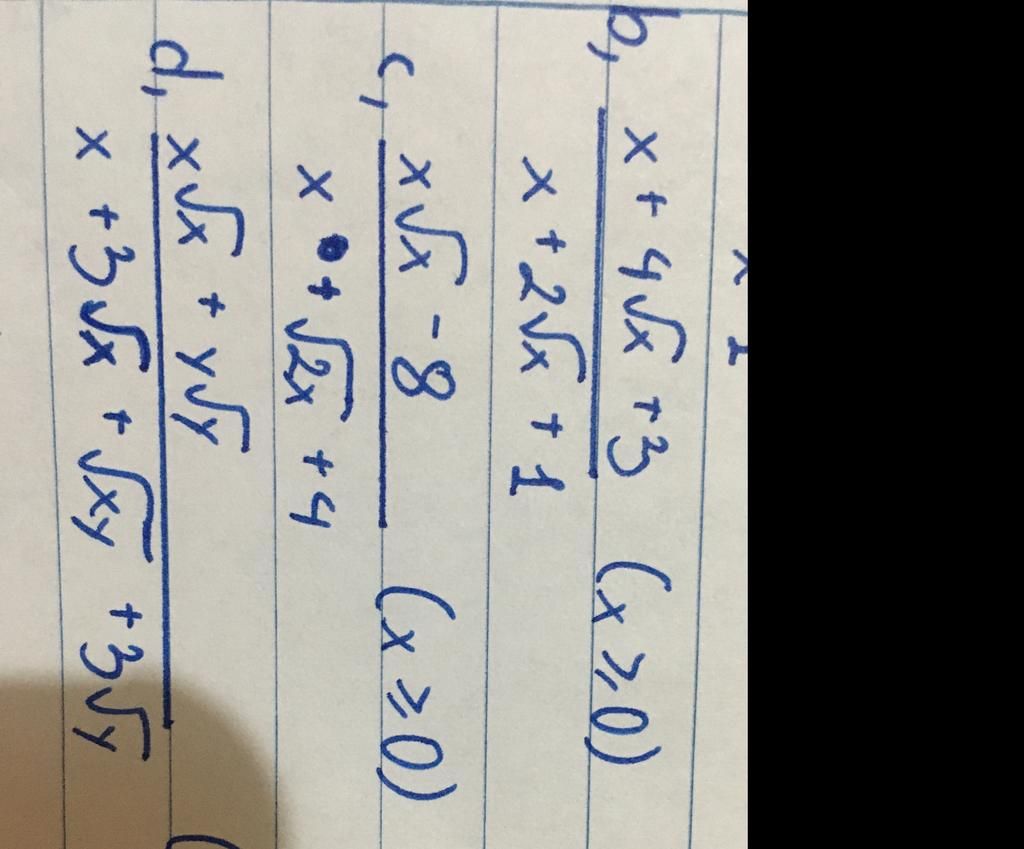 b, x + 4√x + 3 (x ≥ 0)
x + 2√x + 1
c, x√x - 8 (x ≥ 0)
x + √2x + 4
d, x√x + y√y (
x + 3√x + √xy + 3√y